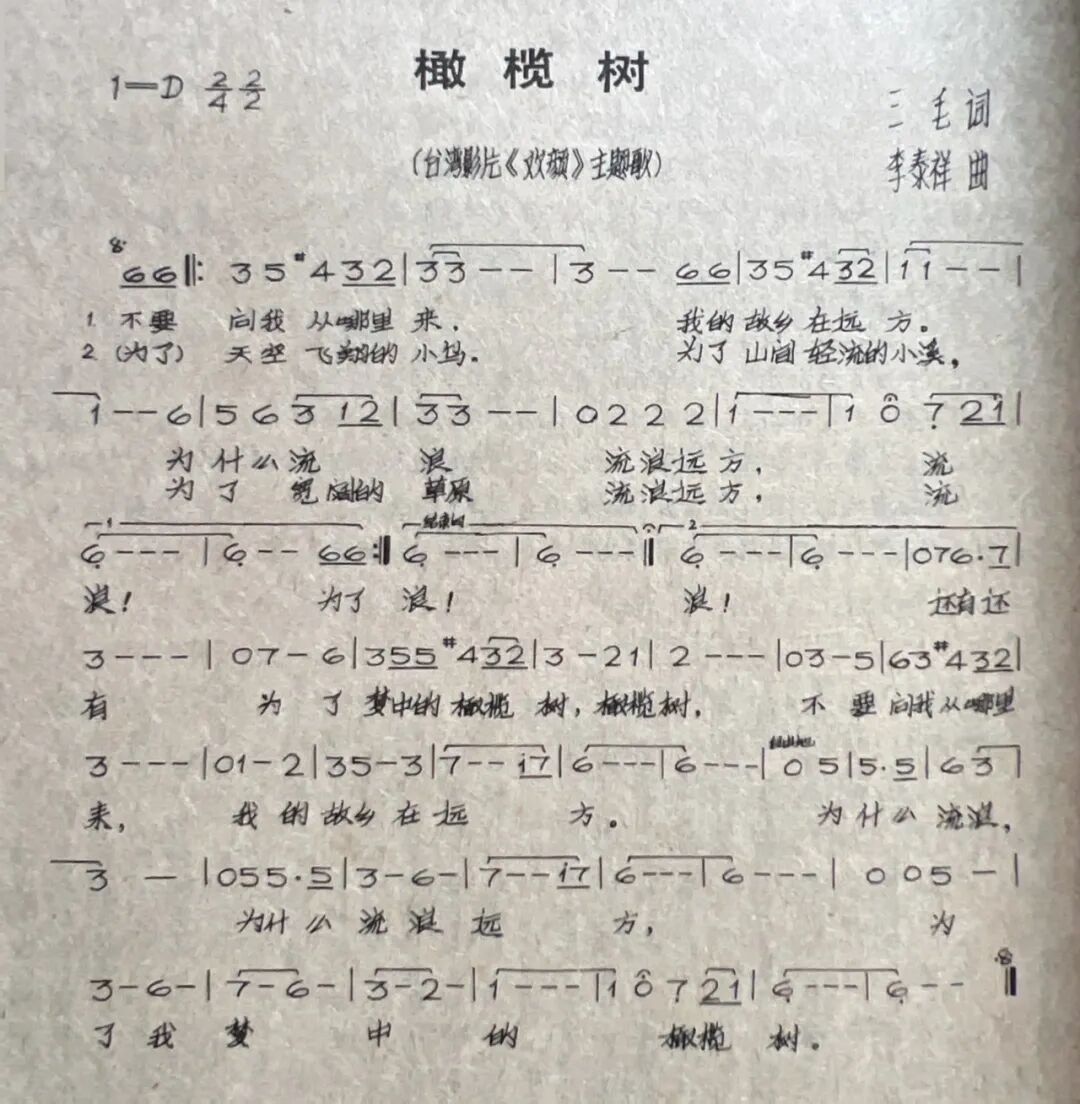 橄榄树
1=D 2/4 2/2
三毛 词
(台湾影片《欢颜》主题歌)
李泰祥 曲
66‖: 35#432|33--|3--66|35#432|11--|
1 不要 问我 从哪里 来. 我的 故乡 在远 方。
2 (为了) 天空 飞翔的 小鸟。 为了 山间 轻流的小溪,
1--6|56312|33--|0222|1---|1 0 7 21|
为 什么流 浪 流浪远方, 流
为 了 宽阔的 草原 流浪远方, 流
1 结束句 2
6---|6--66:‖6---|6---‖6---|6---|076·7|
浪! 为了 浪! 浪! 还有还
3---|07-6|355#432|3-21|2---|03-5|63#432|
有 为 了 梦中的 橄榄 树, 橄榄树, 不 要 问我从哪里
3---|01-2|35-3|7--17|6---|6---|05|5·5|63|
来, 我 的 故乡 在 远 方。 为什么 流浪,
3-|055·5|3-6-|7--17|6---|6---|005-|
为什 么 流 浪 远 方, 为
3-6-|7-6-|3-2-|1---|1 0 7 21|6---|6--‖
了 我 梦 中 的 橄榄 树。